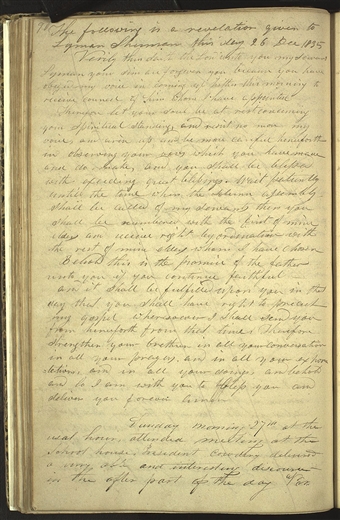 The following is a revelation given to
Lyman Sherman this day 26 Dec 1835
Verily thus saith the Lord unto you my servant
Lyman your sins are forgiven you because you have
obeyed my voice in coming up hither this morning to
receive councel of him whom I have appointed
Therefore let your soul be at rest concerning
your spiritual standing, and resist no more my
voice, and arise up and be more careful henceforth
in observing your vows which you have made
and do make, and you shall be blessed
with exceeding great blessings. Wait patiently
untill the time when the solemn assembly
shall be called of my servants then you
shall be numbered with the first of mine
elders and receive right by ordination with
the rest of mine elders whom I have chosen
Behold this is the promise of the father
unto you if you continue faithful
and it shall be fulfilled upon you in that
day that you shall have right to preach
my gospel wheresoever I shall send you
from henceforth from that time, Therefore
strengthen your brethren in all your conversation
in all your prayers, and in all your exhor
tations, and in all your doings, and behold
and lo I am with you to bless you and
deliver you forever Amen
Sunday morning 27th at the
usual hour, attended meeting at the
School house, President Cowdery delivered
a very able and interesting discourse—
in the after part of the day